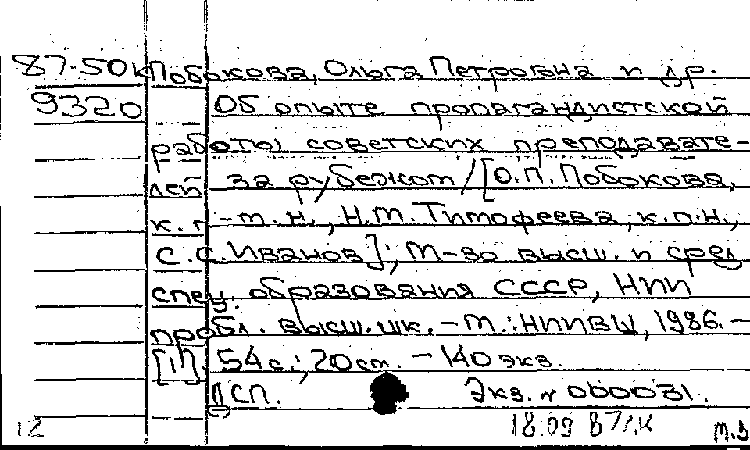 87-50к Побокова, Ольга Петровна и др.
9320 Об опыте пропагандистской
работы советских преподавате-
лей за рубежом / [О.П. Побокова,
к.г.-м.н., Н.М. Тимофеева, к.п.н.,
С.С. Иванов]; М-во высш. и сред.
спец. образования СССР, НИИ
пробл. высш. шк. - М.: НИИВШ, 1986. -
54 с.; 20 см. - 140 экз.
ДСП. Экз. № 000031.
12 18.09 87